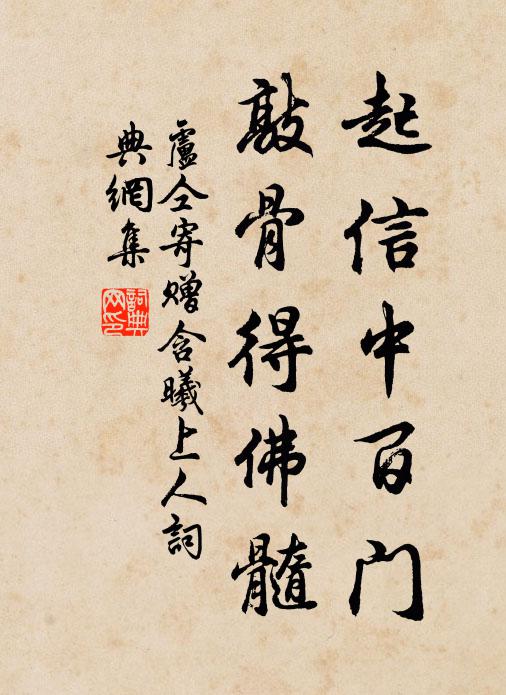 起信中百门
敲骨得佛髓
盧仝寄赠含曦上人詞
典網集
詞典
网印